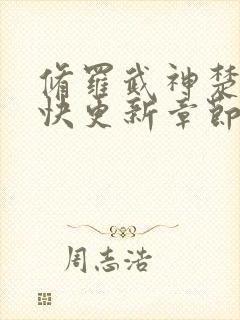 脩羅武神楚
快更新章節
周志浩